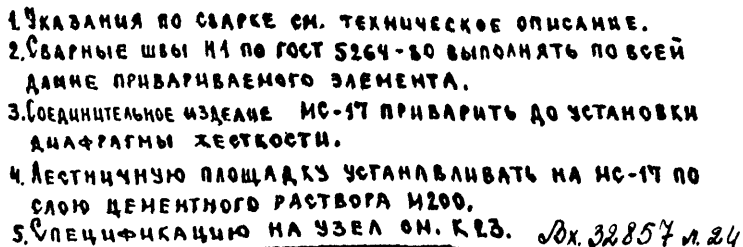 1. Указания по сварке см. техническое описание.
2. Сварные швы Н1 по ГОСТ 5264-80 выполнять по всей
длине привариваемого элемента.
3. Соединительное изделие МС-17 приварить до установки
диафрагмы жесткости.
4. Лестничную площадку устанавливать на МС-17 по
слою цементного раствора М200.
5. Спецификацию на узел см. К23. Вх. 32857 л. 24